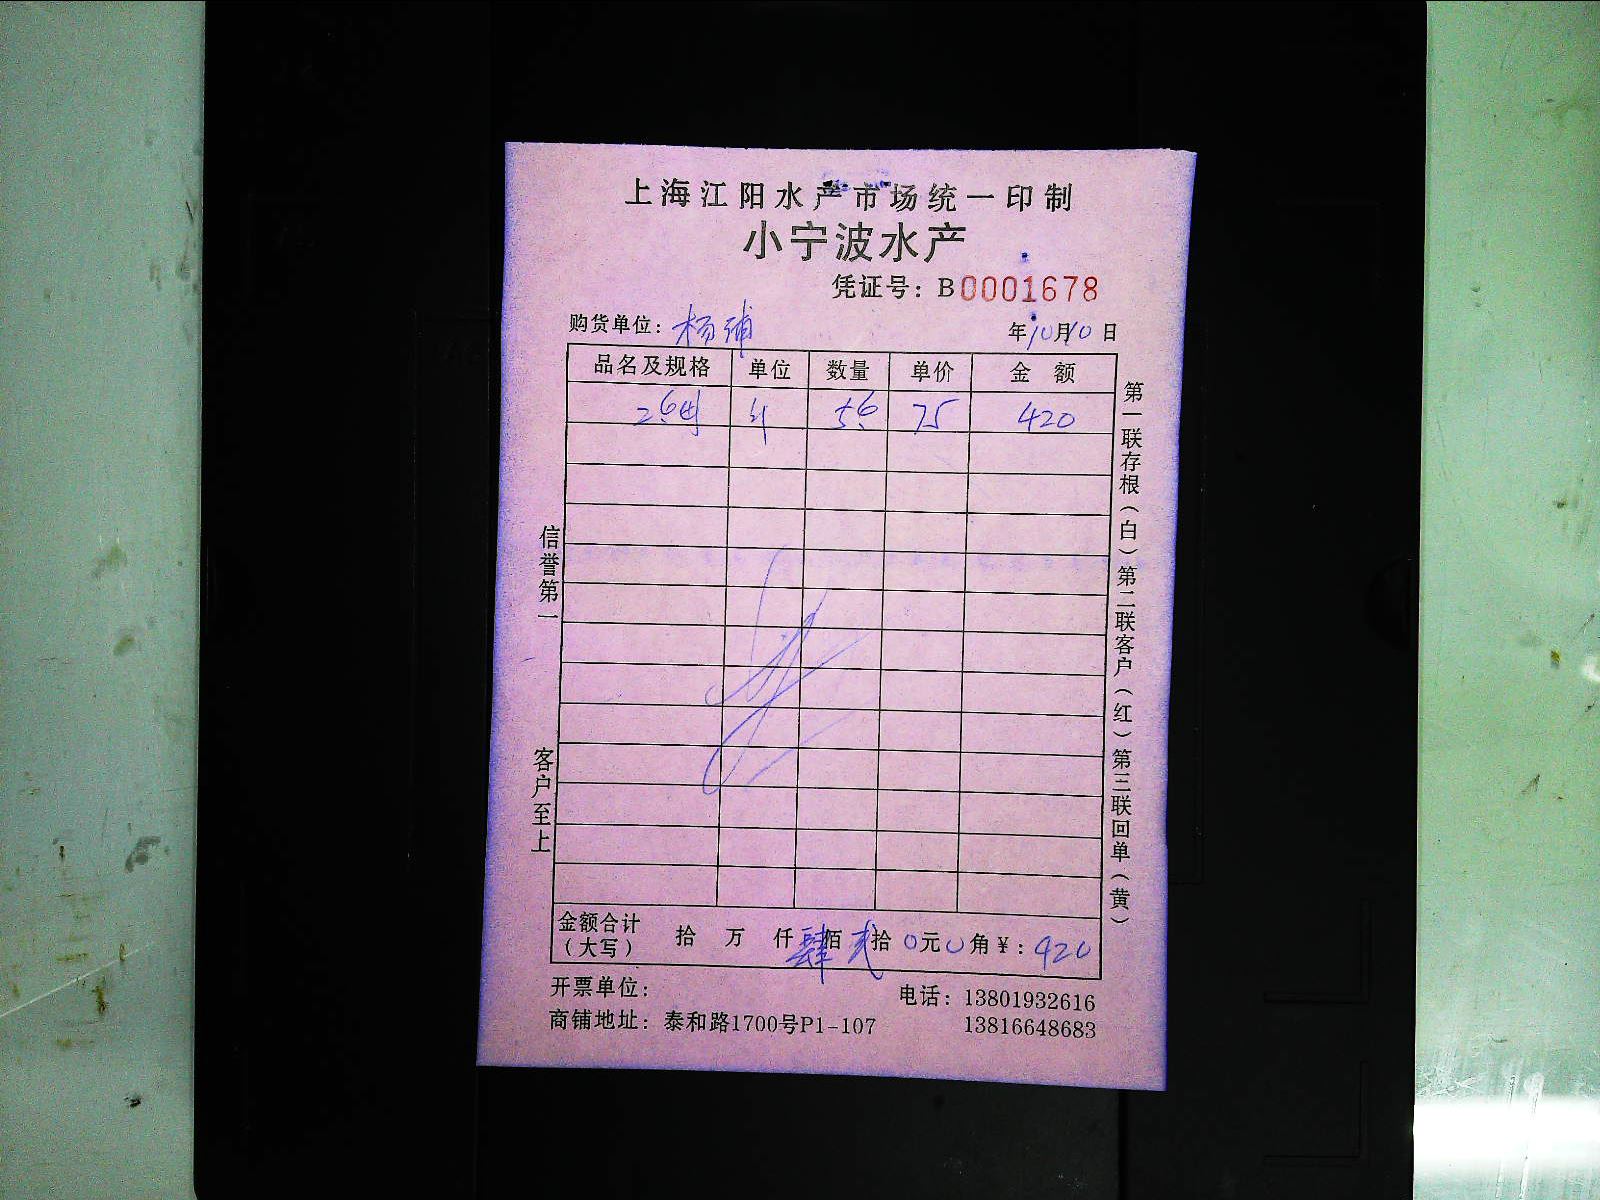 上海江阳水产市场统一印制
小宁波水产
凭证号：B0001678
购货单位：杨浦 年10月10日
品名及规格 单位 数量 单价 金额
斤 5.6 75 420
信誉第一 客户至上
第一联存根（白）第二联客户（红）第三联回单（黄）
金额合计（大写） 拾 万 仟肆佰贰拾0元0角¥：420
开票单位： 电话：13801932616
商铺地址：泰和路1700号P1-107 13816648683